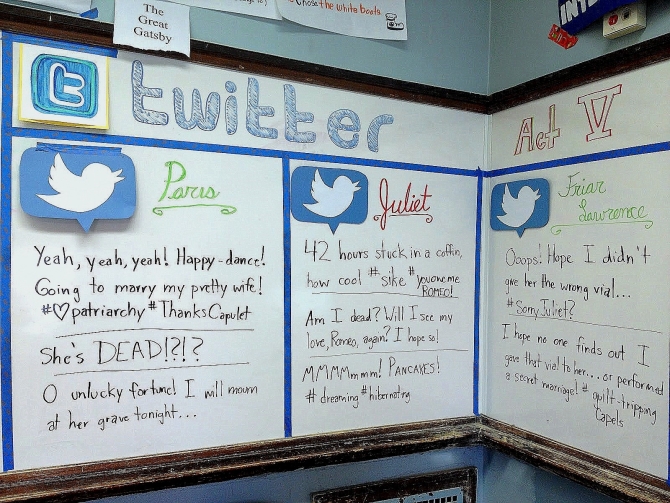 The
Great
Gatsby
Chose the white boots.
twitter
Act V
Paris
Yeah, yeah, yeah! Happy-dance!
Going to marry my pretty wife!
#♡patriarchy #ThanksCapulet
She's DEAD!?!?
O unlucky fortune! I will mourn
at her grave tonight...
Juliet
42 hours stuck in a coffin,
how cool #sike #youoweme
ROMEO!
Am I dead? Will I see my
love, Romeo, again? I hope so!
MMMMmmm! PANCAKES!
#dreaming #hibernating
Friar
Lawrence
Ooops! Hope I didn't
give her the wrong vial...
#SorryJuliet?
I hope no one finds out I
gave that vial to her... or performed
a secret marriage! # guilt-tripping
Capels